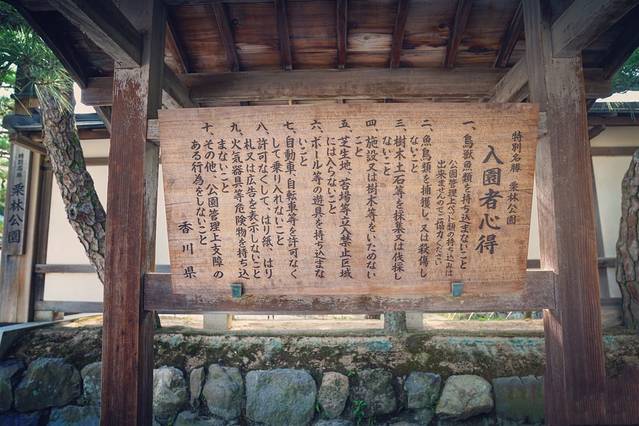 特別名勝 栗林公園
入園者心得
一、鳥獣魚類を持ち込まないこと
公園管理上ペット類の持ち込みは
出来ませんのでご協力ください
二、魚、鳥類を捕獲し、又は殺傷し
ないこと
三、樹木、土石等を採集又は伐採し
ないこと
四、施設又は樹木等をいためない
こと
五、芝生地、苔場等立入禁止区域
には入らないこと
六、ボール等の遊具を持ち込まな
いこと
七、自動車、自転車等を許可なく
して乗り入れないこと
八、許可なくして、はり紙、はり
札又は広告を表示しないこと
九、火気器具等危険物を持ち込
まないこと
十、その他、公園管理上支障の
ある行為をしないこと
香川県
栗林公園